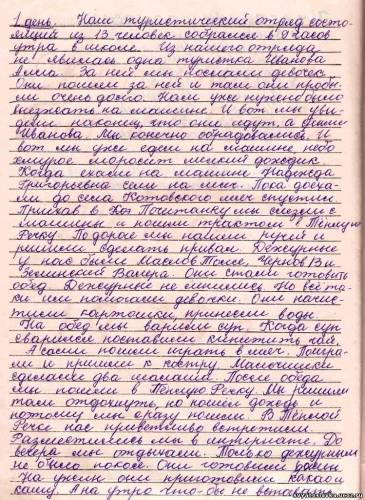 1 день. Наш туристический отряд состо-
ящий из 13 человек собрался в 9 часов
утра в школе. Из нашего отряда
не явилась одна туристка Иванова
Алла. За ней мы послали девочек.
Они пошли за ней и там они пробы-
ли очень долго. Нам уже нужно было
выезжать на машине. И вот мы уви-
дели наконец, что они идут, а с ними
Иванова. Мы конечно обрадовались. И
вот мы уже едем на машине, небо
хмурое моросит мелкий дождик
Когда ехали на машине Надежда
Григорьевна села на мяч. Пока доеха-
ли до села Котовского мяч спустил
Приехав в Почитанку мы слезли с
машины и пошли трактом в Тёплую
Речку. По дороге мы нашли ручей и
решили сделать привал. Дежурные
у нас были Маслов Толя, Чернов Вл.
Зелинский Валера. Они стали готовить
обед. Дежурные не ленились. Но всё та-
ки им помогали девочки. Они начис-
тили картошки, принесли воды.
На обед мы варили суп. Когда суп
сварился поставили кипятить чай.
А сами пошли играть в мяч. Поигра-
ли и пришли к костру. Мальчишки
сделали два шалаша. После обеда
мы пошли в Тёплую Речку. Мы решили
там отдохнуть, но пошёл дождь и
потому мы сразу пошли. В Тёплой
Речке нас приветливо встретили.
Разместились мы в интернате. До
вечера мы отдыхали. Только дежурным
не было покоя. Они готовили ужин.
На ужин они приготовили какао и
кашу. А на утро что-бы не вставать